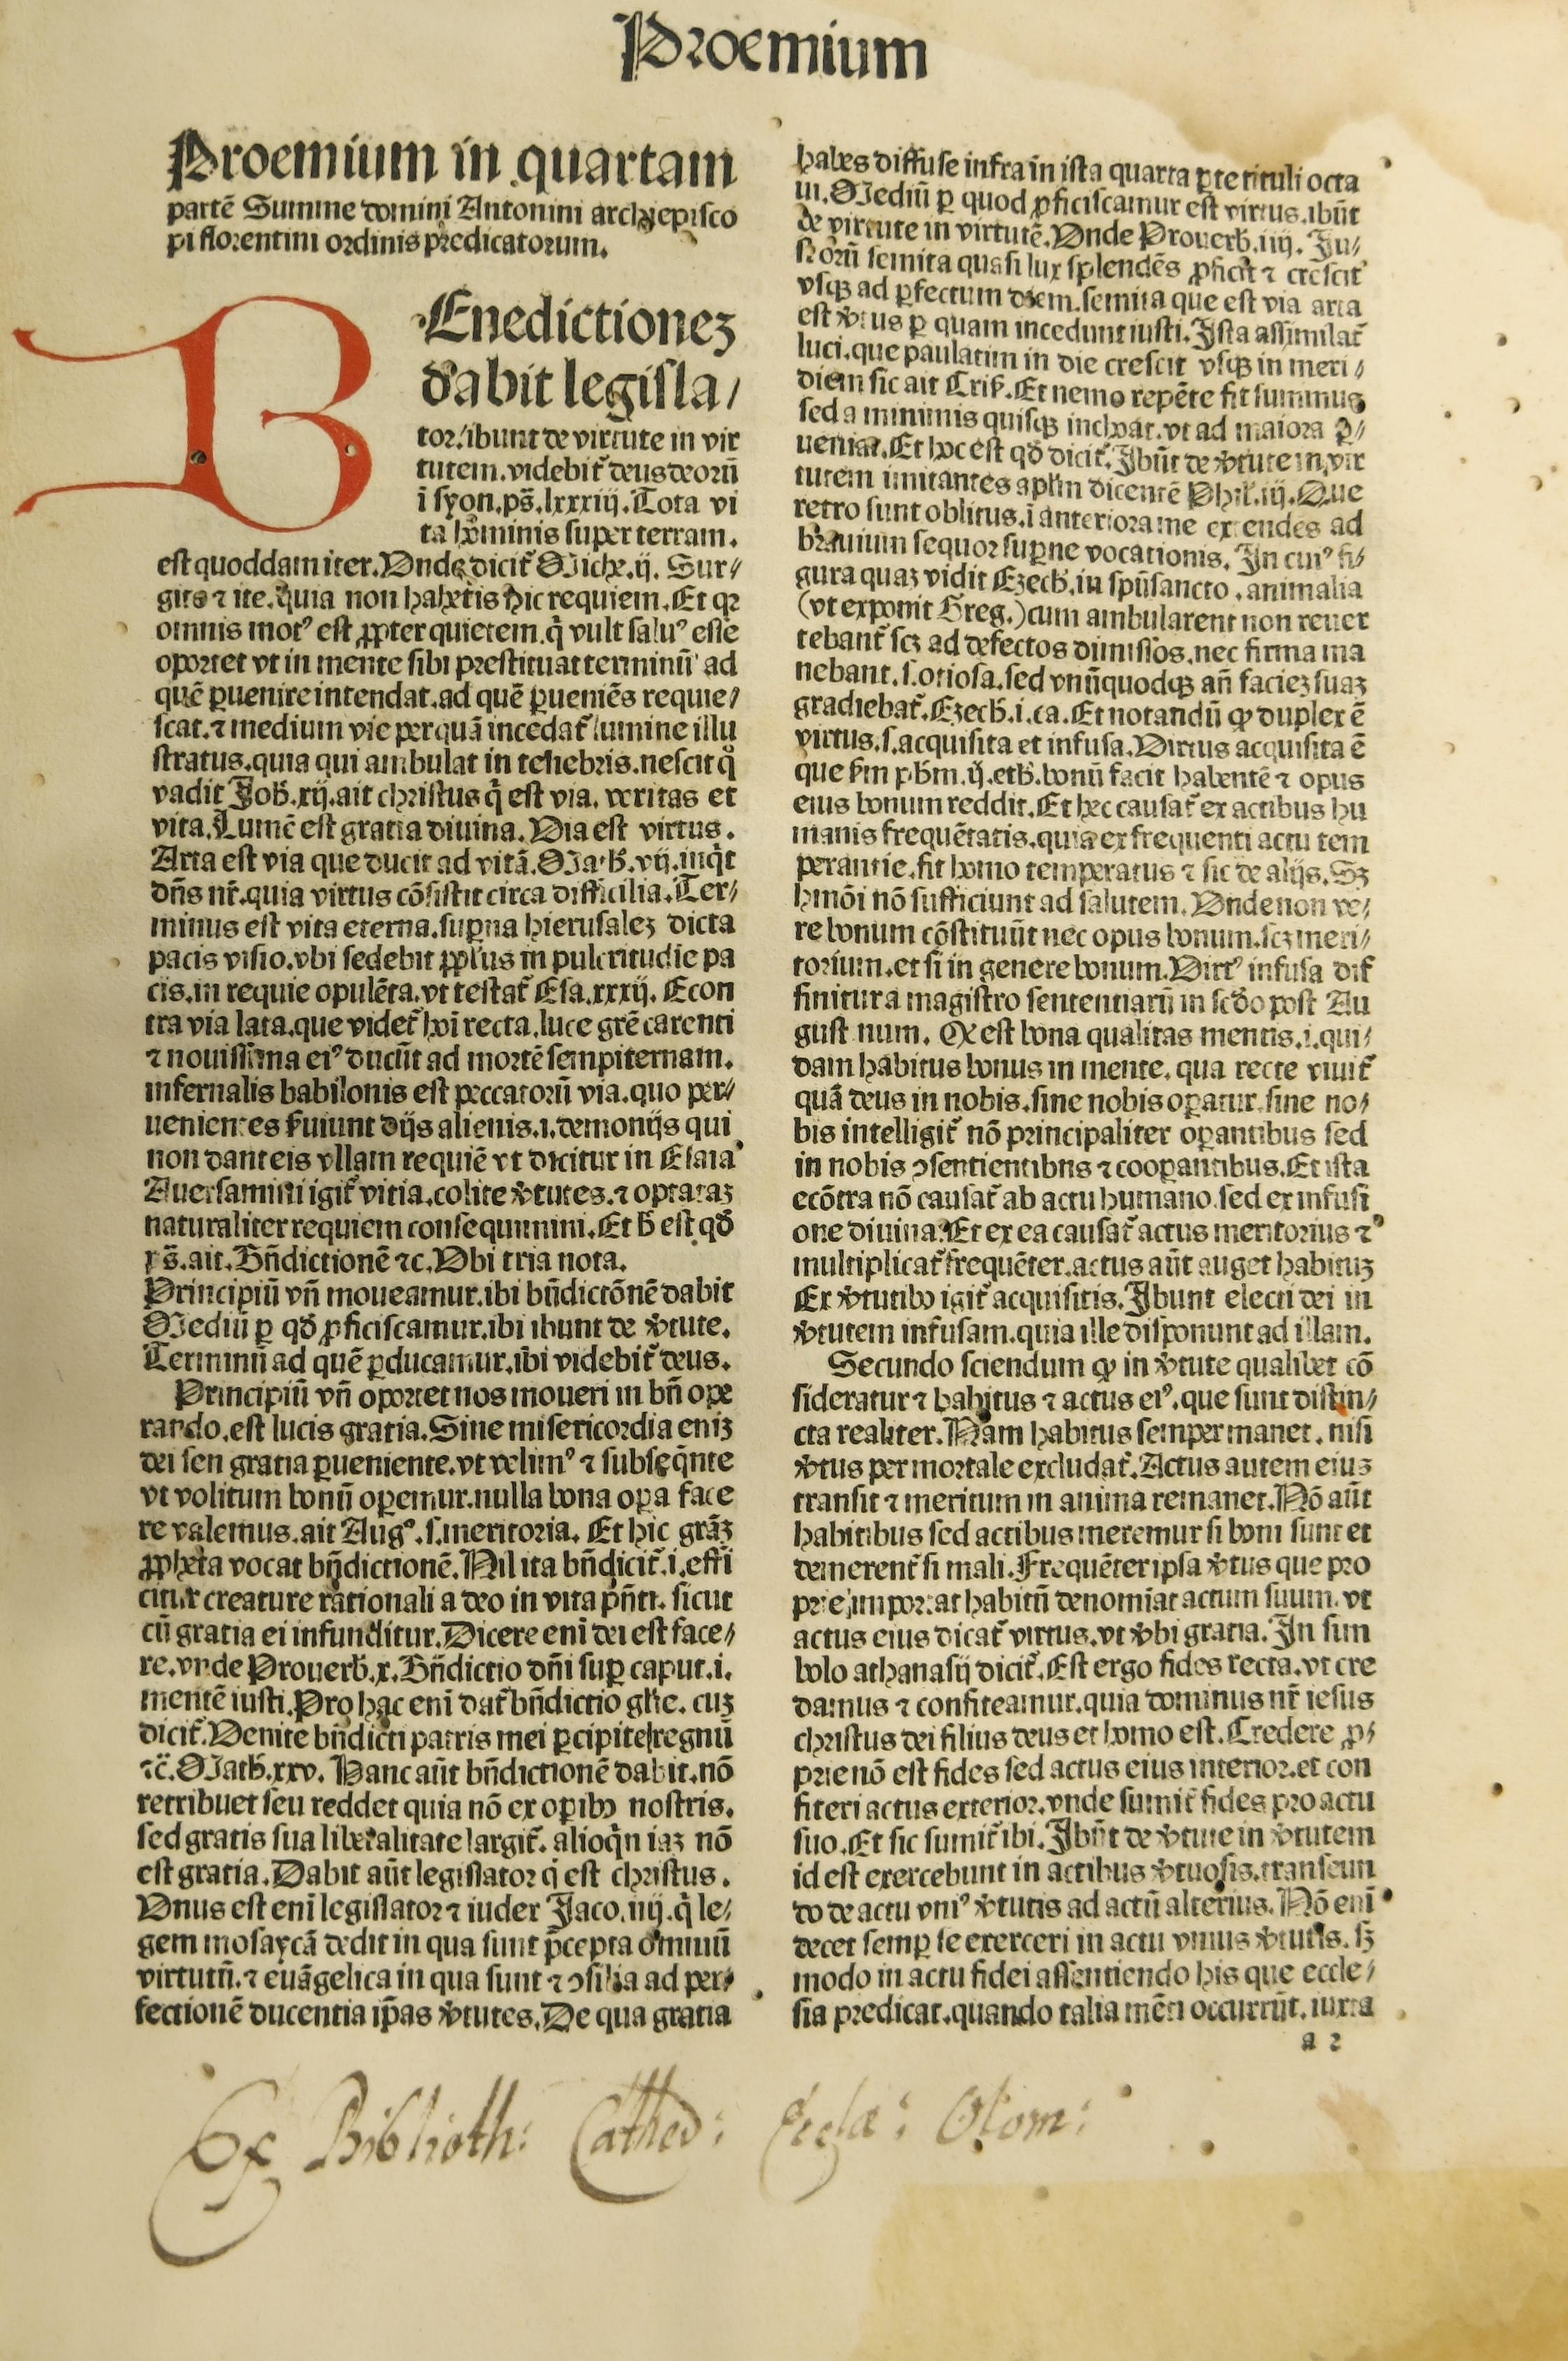 Proemium
Proemium in quartam
partē Summe domini Antonini archyepisco
pi florentini ordinis predicatorum.
BEnedictionez
dabit legisla/
tor/ibunt de virtute in vir
tutem.videbit̄ deus deorū
ī syon.ps̄.lxxxiij.Tota vi
ta hominis super terram.
est quoddam iter.Unde dicit̄ Miche.ij. Sur/
gite ⁊ ite.quia non habetis hic requiem.Et qꝛ
omnis motꝰ est ꝓpter quietem.q̇ vult saluꝰ esse
oportet vt in mente sibi prestituat terminū ad
quē ꝑuenire intendat.ad quē ꝑueniēs requie/
scat.⁊ medium vie per quā incedat̄ lumine illu
stratus.quia qui ambulat in tenebris.nescit q̊
vadit Joh̄.xij.ait christus q̇ est via. veritas et
vita.Lumē est gratia diuina.Via est virtus.
Arta est via que ducit ad vitā.Math̄.vij.inqͥt
dn̄s nr̄.quia virtus cōsistit circa difficilia.Ter/
minus est vita eterna.suꝑna hierusalez dicta
pacis visio.vbi sedebit ꝓplus in pulcritudīe pa
cis.in requie opulēta.vt testat̄ Esa.xxxij. Econ
tra via lata.que videt̄ hoī recta.luce grē carenti
⁊ nouissima eiꝰ ducūt ad mortē sempiternam.
infernalis babilonis est peccatorū via.quo per/
uenientes ẜuiunt dijs alienis.i.demonijs qui
non dant eis vllam requiē vt dicitur in Esaia
Auersamini igit̄ vitia.colite v̄tutes.⁊ optataz
naturaliter requiem consequimini.Et h̄ est qd̄
ps̄.ait.Bn̄dictionē ⁊c.Ubi tria nota.
Principiū vn̄ moueamur.ibi bn̄dictōnē dabit
Mediū ꝑ qd̄ ꝓficiscamur.ibi ibunt de v̄tute.
Terminū ad quē ꝑducamur.ibi videbit̄ deus.
Principiū vn̄ oportet nos moueri in bn̄ ope
rando.est lucis gratia.Sine misericordia eniz
dei seu gratia ꝑueniente.vt velimꝰ ⁊ subseq̄nte
vt volitum bonū oꝑemur.nulla bona oꝑa face
re valemus.ait Augꝰ.s.meritoria. Et hic grāz
ꝓpheta vocat bn̄dictionē.Nil ita bn̄dicit̄.i.effi
citur creature rationali a deo in vita pn̄ti. sicut
cū gratia ei infunditur.Dicere enī dei est face/
re.vnde Prouerb̄.x.Bn̄dictio dn̄i suꝑ caput.i.
mentē iusti.Pro hac enī dat̄ bn̄dictio gl̄ie. cuz
dicit̄.Uenite bn̄dicti patris mei ꝑcipite regnū
⁊c̄.Math̄.xxv. Hanc aūt bn̄dictionē dabit.nō
retribuet seu reddet quia nō ex oꝑibꝰ nostris.
sed gratis sua liberalitate largit̄. alioqͥn iaz nō
est gratia.Dabit aūt legislator q̇ est christus.
Unus est enī legislator ⁊ iudex Jaco.iiij.q̇ le/
gem mosaycā dedit in qua sunt p̄cepta omniū
virtutū.⁊ euāgelica in qua sunt ⁊ ꝯsilia ad per/
fectionē ducentia ip̄as v̄tutes.De qua gratia
habes diffuse infra in ista quarta ꝑte tituli octa
ui.Mediū ꝑ quod ꝓficiscamur est virtus.ibūt
de virtute in virtutē.Unde Prouerb̄.iiij. Ju/
storū semita quasi lux splendēs ꝓficit ⁊ crescit
vsqꝫ ad ꝑfectum diem.semita que est via arta
est v̄tus ꝑ quam incedunt iusti.Ista assimilat̄
luci.que paulatim in die crescit vsqꝫ in meri/
diem sic ait Cris̄.Et nemo repēte fit summus
sed a minimis quisqꝫ inchoat.vt ad maiora ꝑ/
ueniat.Et hoc est qd̄ dicit̄.Ibūt de v̄tute in vir
tutem imitantes aplm̄ dicentē Phil̄.iij.Que
retro sunt oblitus.ī anteriora me extendēs ad
brauium sequor suꝑne vocationis. In cuiꝰ fi/
gura quaz vidit Ezech̄.in spū sancto.animalia
(vt exponit Greg.)cum ambularent non reuer
tebant̄ scz ad defectos dimissos.nec firma ma
nebant.s.otiosa.sed vnūquodqꝫ an̄ faciez suaz
gradiebat̄.Ezech̄.i.ca.Et notandū ꝙ duplex ē
virtus.s.acquisita et infusa.Virtus acquisita ē
que ẜm ph̄m.ij.eth̄.bonū facit habentē ⁊ opus
eius bonum reddit.Et hec causat̄ ex actibus hu
manis frequētatis.quia ex frequenti actu tem
perantie.fit homo temperatus ⁊ sic de alijs.Sz
hmōi nō sufficiunt ad salutem.Unde non ve/
re bonum cōstituūt nec opus bonum.scz meri/
torium.et si in genere bonum.Virtꝰ infusa dif
finitur a magistro sententiarū in scd̄o post Au
gustinum. Q est bona qualitas mentis.i.qui/
dam habitus bonus in mente. qua recte viuit̄
quā deus in nobis.sine nobis oꝑatur.sine no/
bis intelligit̄ nō principaliter oꝑantibus sed
in nobis ꝯsentientibus ⁊ cooꝑantibus.Et ista
ecōtra nō causat̄ ab actu humano.sed ex infusi
one diuina.Et ex ea causat̄ actus meritorius ⁊
multiplicat̄ frequēter.actus aūt auget habituz
Ex v̄tutibꝰ igit̄ acquisitis.Ibunt electi dei in
v̄tutem infusam.quia ille disponunt ad illam.
Secundo sciendum ꝙ in v̄tute qualibet cō
sideratur ⁊ habitus ⁊ actus eiꝰ.que sunt distin/
cta realiter.Nam habitus semper manet. nisi
v̄tus per mortale excludat̄.Actus autem eius
transit ⁊ meritum in anima remanet.Nō aūt
habitibus sed actibus meremur si boni sunt et
demerent̄ si mali.Frequēter ipsa v̄tus que pro
prie importat habitū denomīat actum suum.vt
actus eius dicat̄ virtus.vt v̄bi gratia. In sim
bolo athanasij dicit̄.Est ergo fides recta.vt cre
damus ⁊ confiteamur.quia dominus nr̄ iesus
christus dei filius deus et homo est.Credere ꝓ/
prie nō est fides sed actus eius interior.et con
fiteri actus exterior.vnde sumit̄ fides pro actu
suo.Et sic sumit̄ ibi.Ibūt de v̄tute in v̄tutem
id est exercebunt in actibus v̄tuosis.transeun
do de actu vniꝰ v̄tutis ad actū alterius. Nō enī
decet semꝑ se exerceri in actu vnius v̄tutis. sz
modo in actu fidei assentiendo his que eccle/
sia predicat.quando talia mēti occurrūt.iuxta
a 2
Ex Biblioth: Cathed: Eccłæ: Olom: